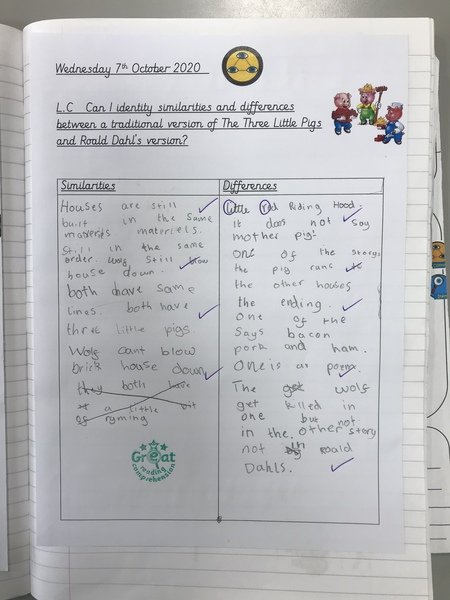 Wednesday 7th October 2020
L.C Can I identify similarities and differences
between a traditional version of The Three Little Pigs
and Roald Dahl's version?
Similarities
Houses are still
built in the same
materiels.
Still in the same
order. Wolf still blow
house down.
both have same
lines. both have
three little pigs.
Wolf cant blow
brick house down
they both have
a little bit
of ryming
Great
reading
comprehension
Differences
little red Riding Hood.
It does not say
mother pig.
one of the storys
the pig runs to
the other houses
the ending.
one of the
says bacon
pork and ham.
One is a poem.
The get wolf
get killed in
one but not
in the other story
not Roald
Dahls.